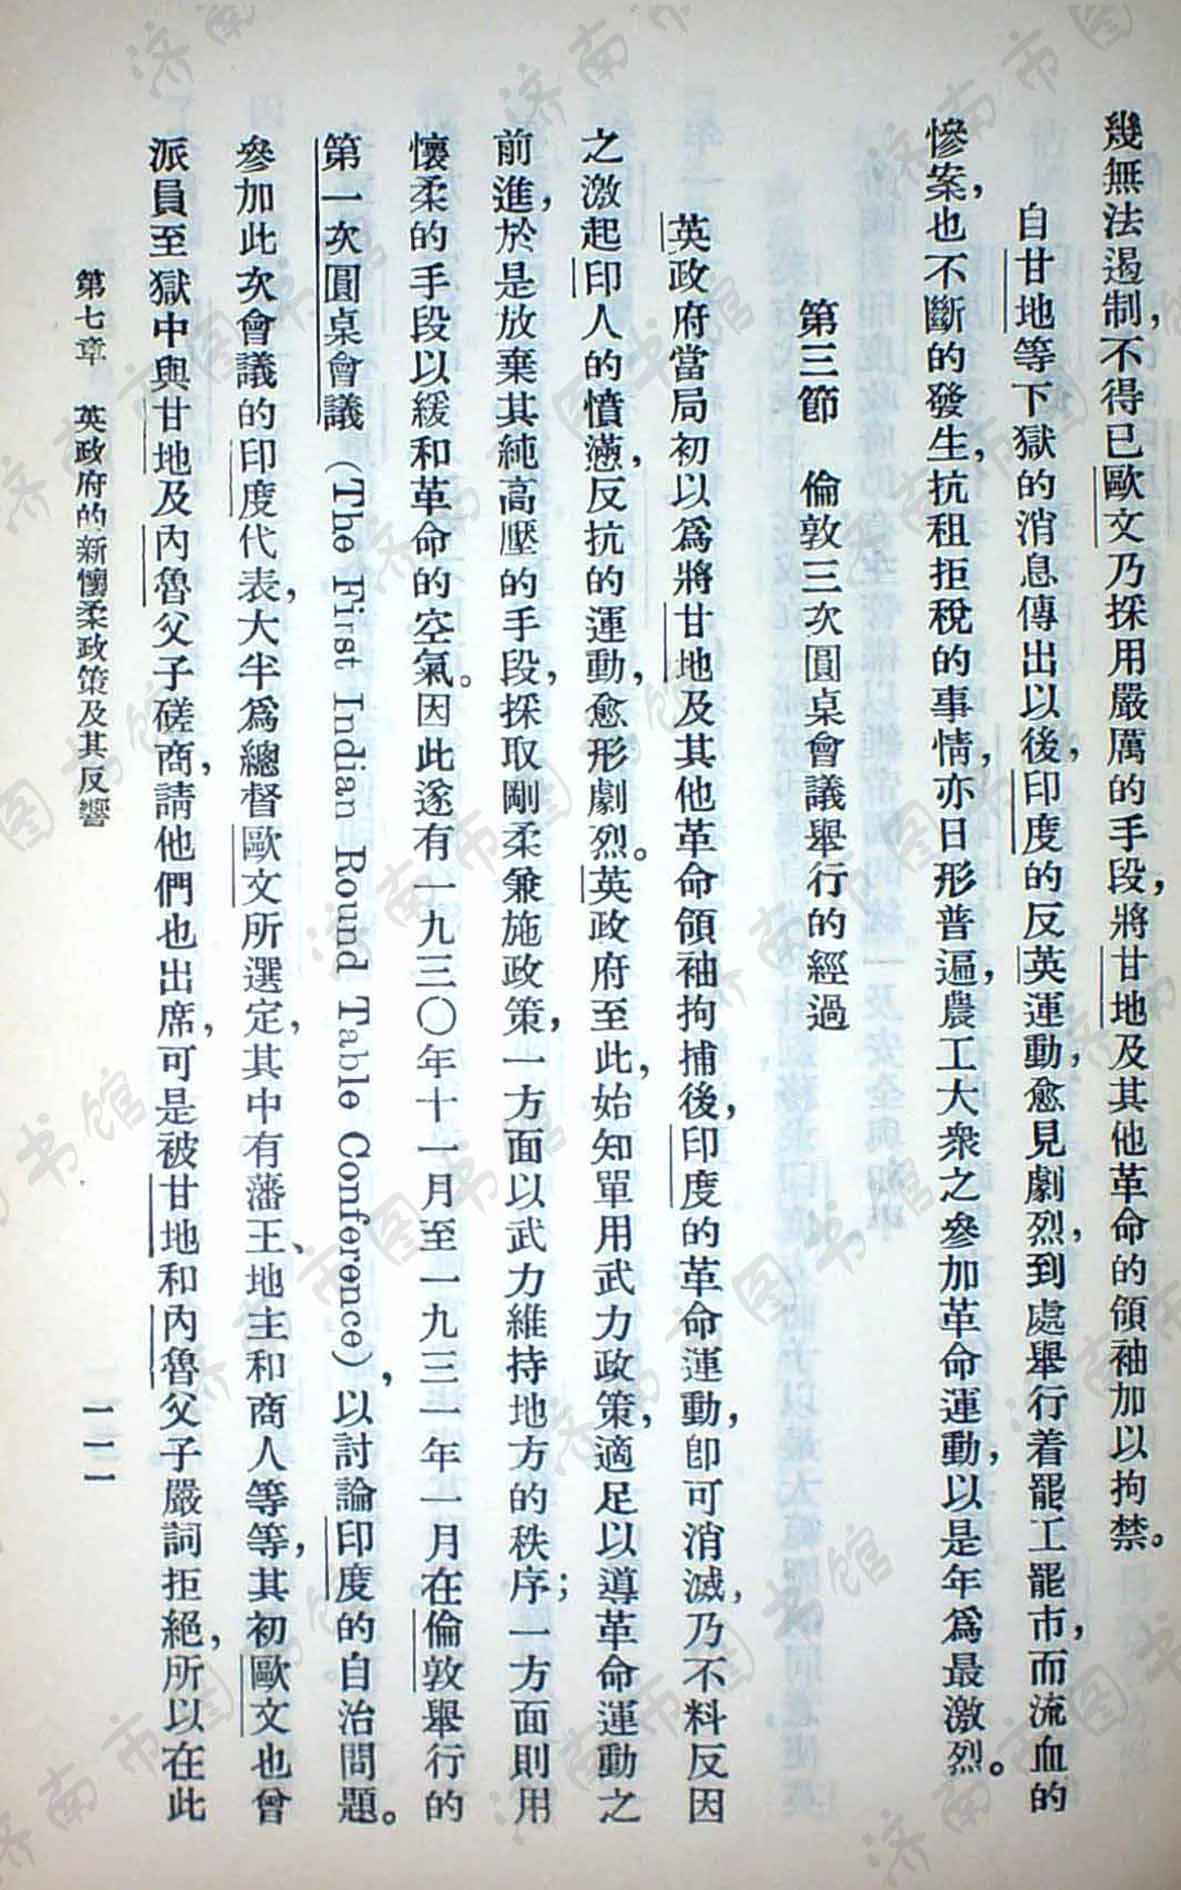 幾無法遏制，不得已歐文乃採用嚴厲的手段，將甘地及其他革命的領袖加以拘禁。
自甘地等下獄的消息傳出以後，印度的反英運動，愈見劇烈，到處舉行着罷工罷市，而流血的
慘案，也不斷的發生，抗租拒稅的事情，亦日形普遍，農工大衆之參加革命運動，以是年爲最激烈。
第三節　倫敦三次圓桌會議舉行的經過
英政府當局初以爲將甘地及其他革命領袖拘捕後，印度的革命運動，卽可消滅，乃不料反因
之激起印人的憤懣，反抗的運動，愈形劇烈。英政府至此，始知單用武力政策，適足以導革命運動之
前進，於是放棄其純高壓的手段，採取剛柔兼施政策，一方面以武力維持地方的秩序；一方面則用
懷柔的手段以緩和革命的空氣。因此遂有一九三〇年十一月至一九三一年一月在倫敦舉行的
第一次圓桌會議（The First Indian Round Table Conference），以討論印度的自治問題。
參加此次會議的印度代表，大半爲總督歐文所選定，其中有藩王、地主和商人等等，其初歐文也曾
派員至獄中與甘地及內魯父子磋商，請他們也出席，可是被甘地和內魯父子嚴詞拒絕，所以在此
第七章　英政府的新懷柔政策及其反響
一一一
济南市图书馆